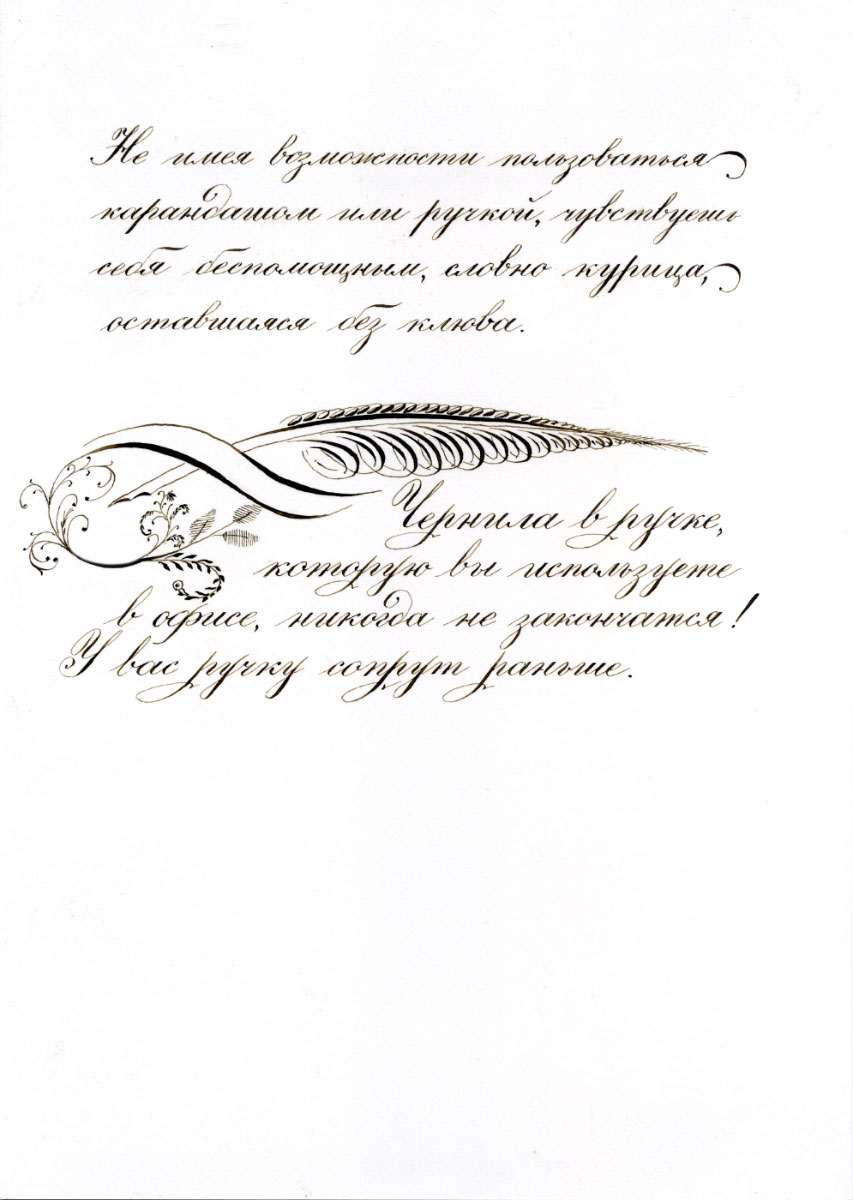 Не имея возможности пользоваться
карандашом или ручкой, чувствуешь
себя беспомощным, словно курица,
оставшаяся без клюва.
Чернила в ручке,
которую вы используете
в офисе, никогда не закончатся!
У вас ручку сопрут раньше.